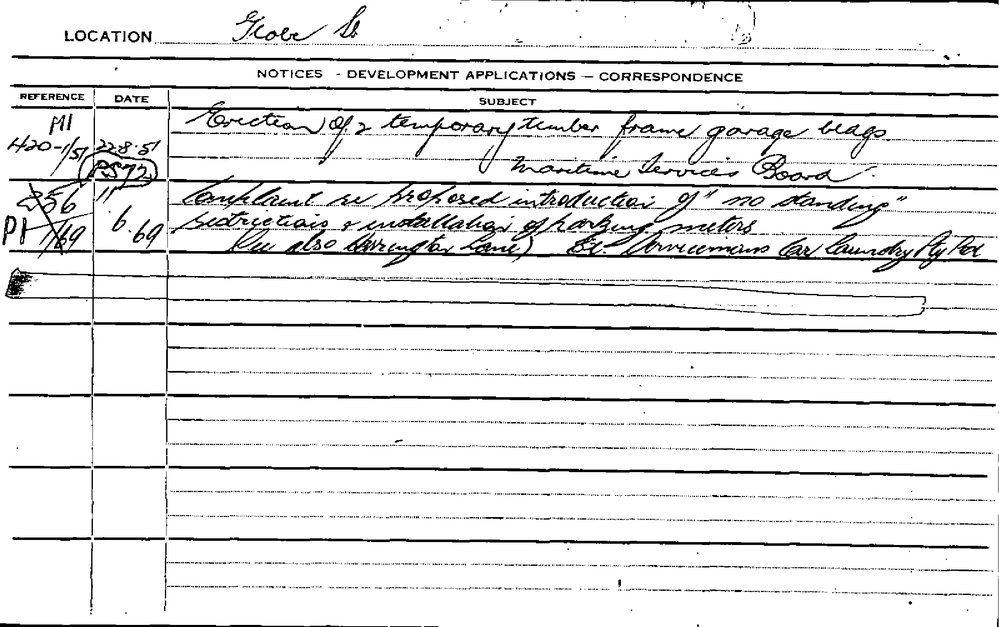 LOCATION Globe St
NOTICES - DEVELOPMENT APPLICATIONS — CORRESPONDENCE
REFERENCE DATE SUBJECT
M1 Erection of 2 temporary timber frame garage bldgs.
420-1/51 22.8.51
PS72 Maritime Services Board.
356 11 Complaint re proposed introduction of "no standing"
P1 1/69 6.69 restrictions & installation of parking meters
(See also Carrington Lane) Servicemans Car Laundry Pty Ltd